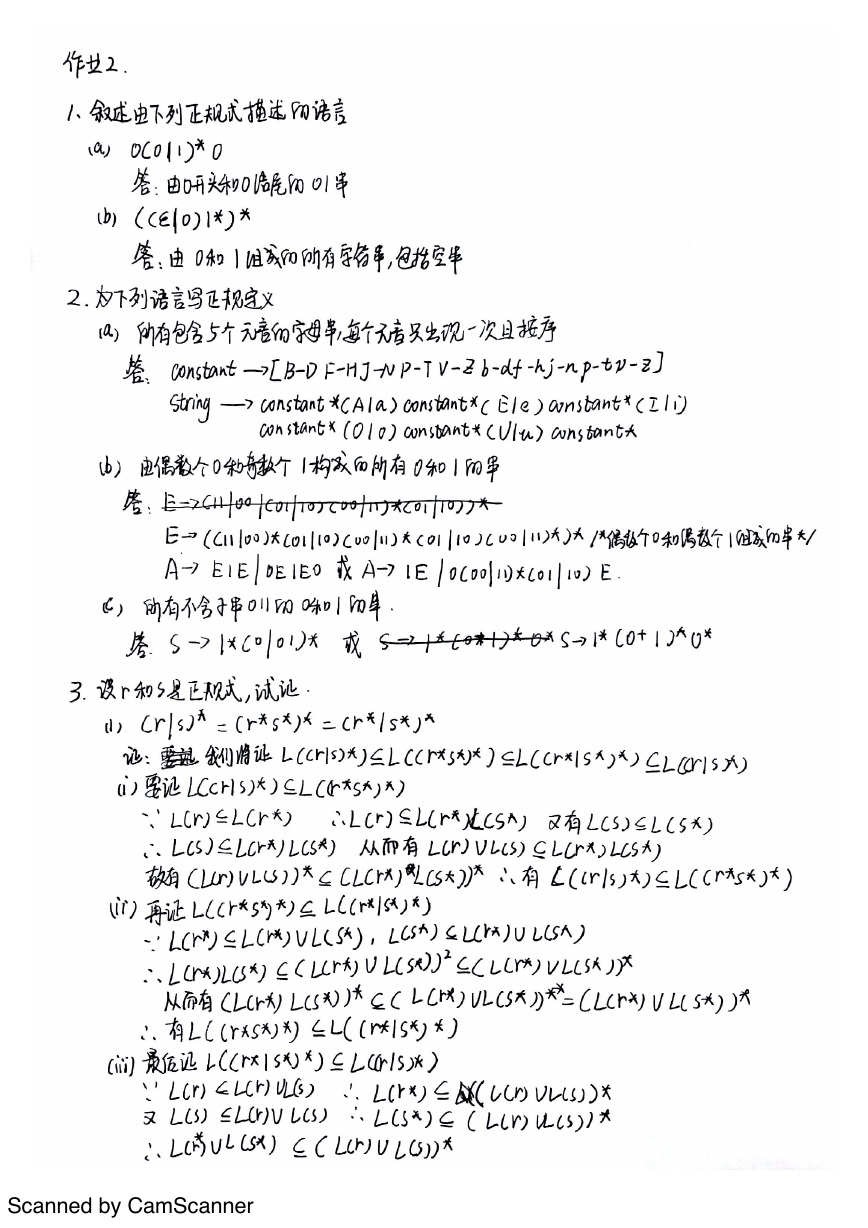 作业2.
1、叙述由下列正规式描述的语言
(a) 0(0|1)*0
答：由0开头和0结尾的01串
(b) ((ε|0)1*)*
答：由0和1组成的所有字符串，包括空串
2.为下列语言写正规定义
(a) 所有包含5个元音的字母串，每个元音只出现一次且按序
答： constant →[B-D F-H J-N P-T V-Z b-d f-h j-n p-t v-z]
String → constant*(A|a) constant*(E|e) constant*(I|i)
constant*(O|o) constant*(U|u) constant*
(b) 由偶数个0和奇数个1构成的所有0和1的串
答：E→(11|00|(01|10)(00|11)*(01|10))*
E→((11|00)*(01|10)(00|11)*(01|10)(00|11)*)* /*偶数个0和偶数个1组成的串*/
A→ E1E|0E1E0 或 A→ 1E|0(00|11)*(01|10) E.
(c) 所有不含子串011的0和1的串.
答. S→1*(0|01)* 或 S→1*(0*1)*0* S→1*(0+1)*0*
3. 设r和s是正规式，试证.
(1) (r|s)* = (r*s*)* = (r*|s*)*
证：我们将证 L((r|s)*)⊆L((r*s*)*)⊆L((r*|s*)*)⊆L((r|s)*)
(i)要证L((r|s)*)⊆L((r*s*)*)
∵ L(r)⊆L(r*) ∴L(r)⊆L(r*)L(s*) 又有L(s)⊆L(s*)
∴ L(s)⊆L(r*)L(s*) 从而有 L(r)∪L(s)⊆L(r*)L(s*)
故有 (L(r)∪L(s))*⊆(L(r*)L(s*))* ∴有 L((r|s)*)⊆L((r*s*)*)
(ii) 再证L((r*s*)*)⊆L((r*|s*)*)
∵ L(r*)⊆L(r*)∪L(s*)，L(s*)⊆L(r*)∪L(s*)
∴L(r*)L(s*)⊆(L(r*)∪L(s*))²⊆(L(r*)∪L(s*))*
从而有 (L(r*)L(s*))*⊆(L(r*)∪L(s*))**=(L(r*)∪L(s*))*
∴有L((r*s*)*)⊆L((r*|s*)*)
(iii)最后证 L((r*|s*)*)⊆L((r|s)*)
∵ L(r)⊆L(r)∪L(s) ∴ L(r*)⊆(L(r)∪L(s))*
又 L(s)⊆L(r)∪L(s) ∴ L(s*)⊆(L(r)∪L(s))*
∴L(r*)∪L(s*)⊆(L(r)∪L(s))*
Scanned by CamScanner